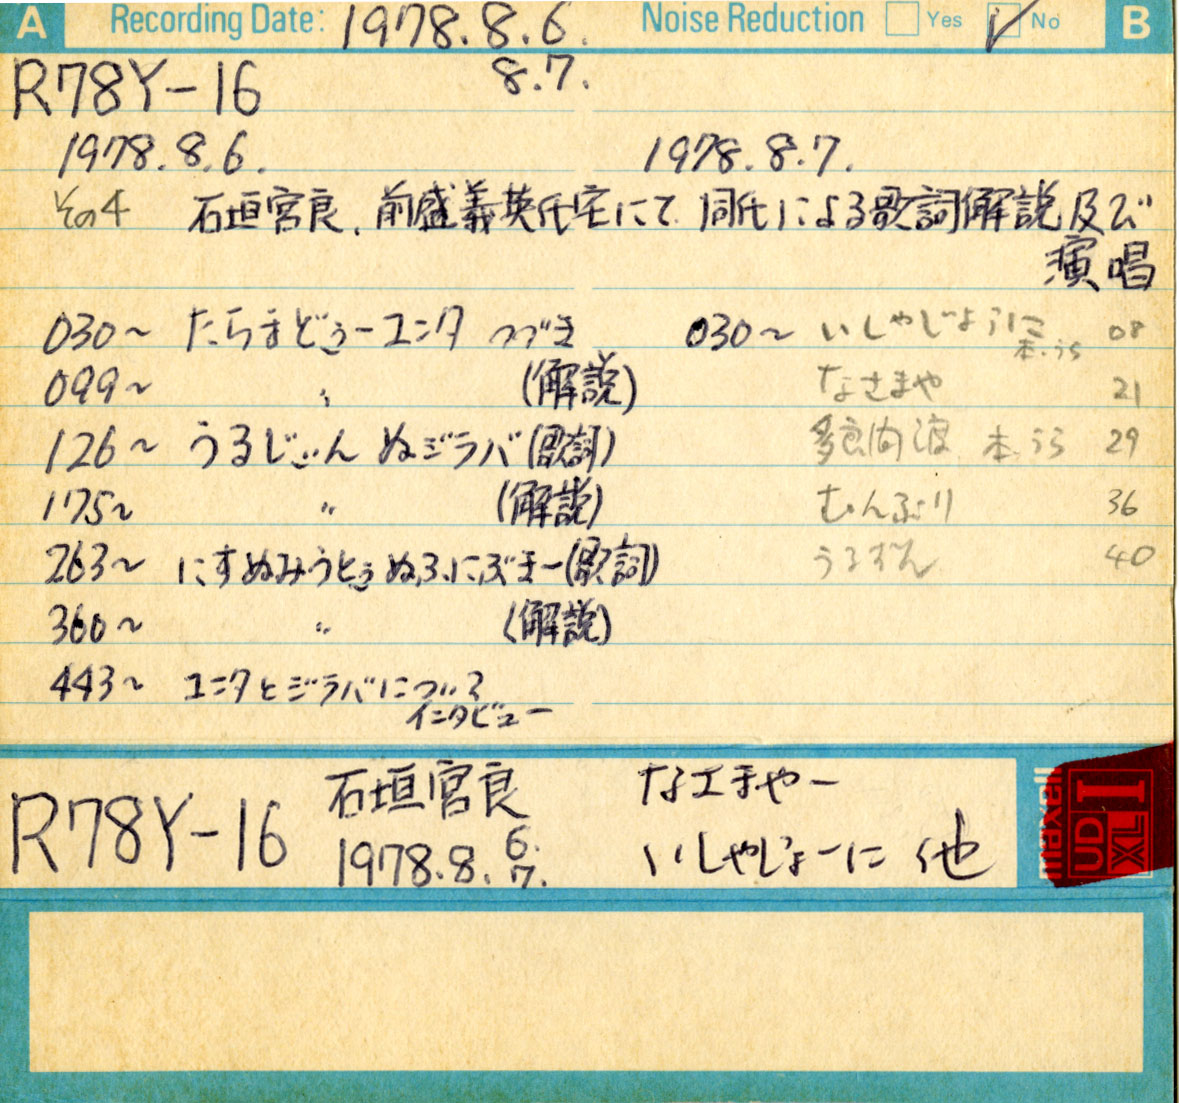 A Recording Date: 1978.8.6. Noise Reduction Yes No B
8.7.
R78Y-16
1978.8.6. 1978.8.7.
その4 石垣宮良、前盛義英氏宅にて 同氏による歌詞解説及び
演唱
030~ たらまどぅーユンタ つづき 030~ いしゃじょうに 本.うら 08
099~ 〃 (解説) なさまや 21
126~ うるじぃん ぬジラバ(歌詞) 多良間渡 本.うら 29
175~ 〃 (解説) むんぶり 36
263~ にすぬみうとぅぬふにぶきー(歌詞) うるずん 40
360~ 〃 (解説)
443~ ユンタとジラバについて
インタビュー
R78Y-16 石垣宮良 なエまやー
1978.8. 6. 7. いしゃじょーに 他
maxell UD XL I